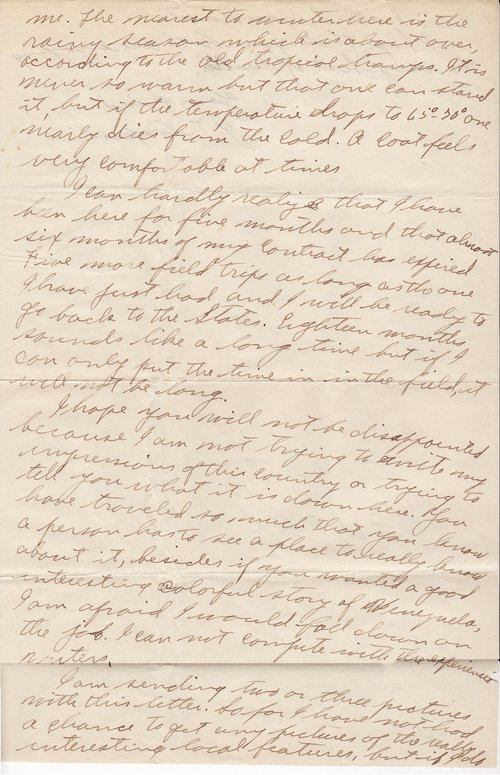 me. The nearest to winter here is the
rainy season which is about over,
according to the old tropical tramps. It is
never so warm but that one can stand
it, but if the temperature drops to 65°-70° one
nearly dies from the cold. A coat feels
very comfortable at times
I can hardly realize that I have
been here for five months and that almost
six months of my contract has expired
Five more field trips as long as the one
I have just had and I will be ready to
go back to the States. Eighteen months
sounds like a long time but if I
can only put the time in in the field, it
will not be long.
I hope you will not be disappointed
because I am not trying to write my
impressions of this country or trying to
tell you what it is down here. You
have traveled so much that you know
a person has to see a place to really know
about it, besides if you wanted a good
interesting colorful story of Venezuela,
I am afraid I would fall down on
the job. I can not compete with the experienced
writers.
I am sending two or three pictures
with this letter. So far I have not had
a chance to get any pictures of the really
interesting local features, but if I do